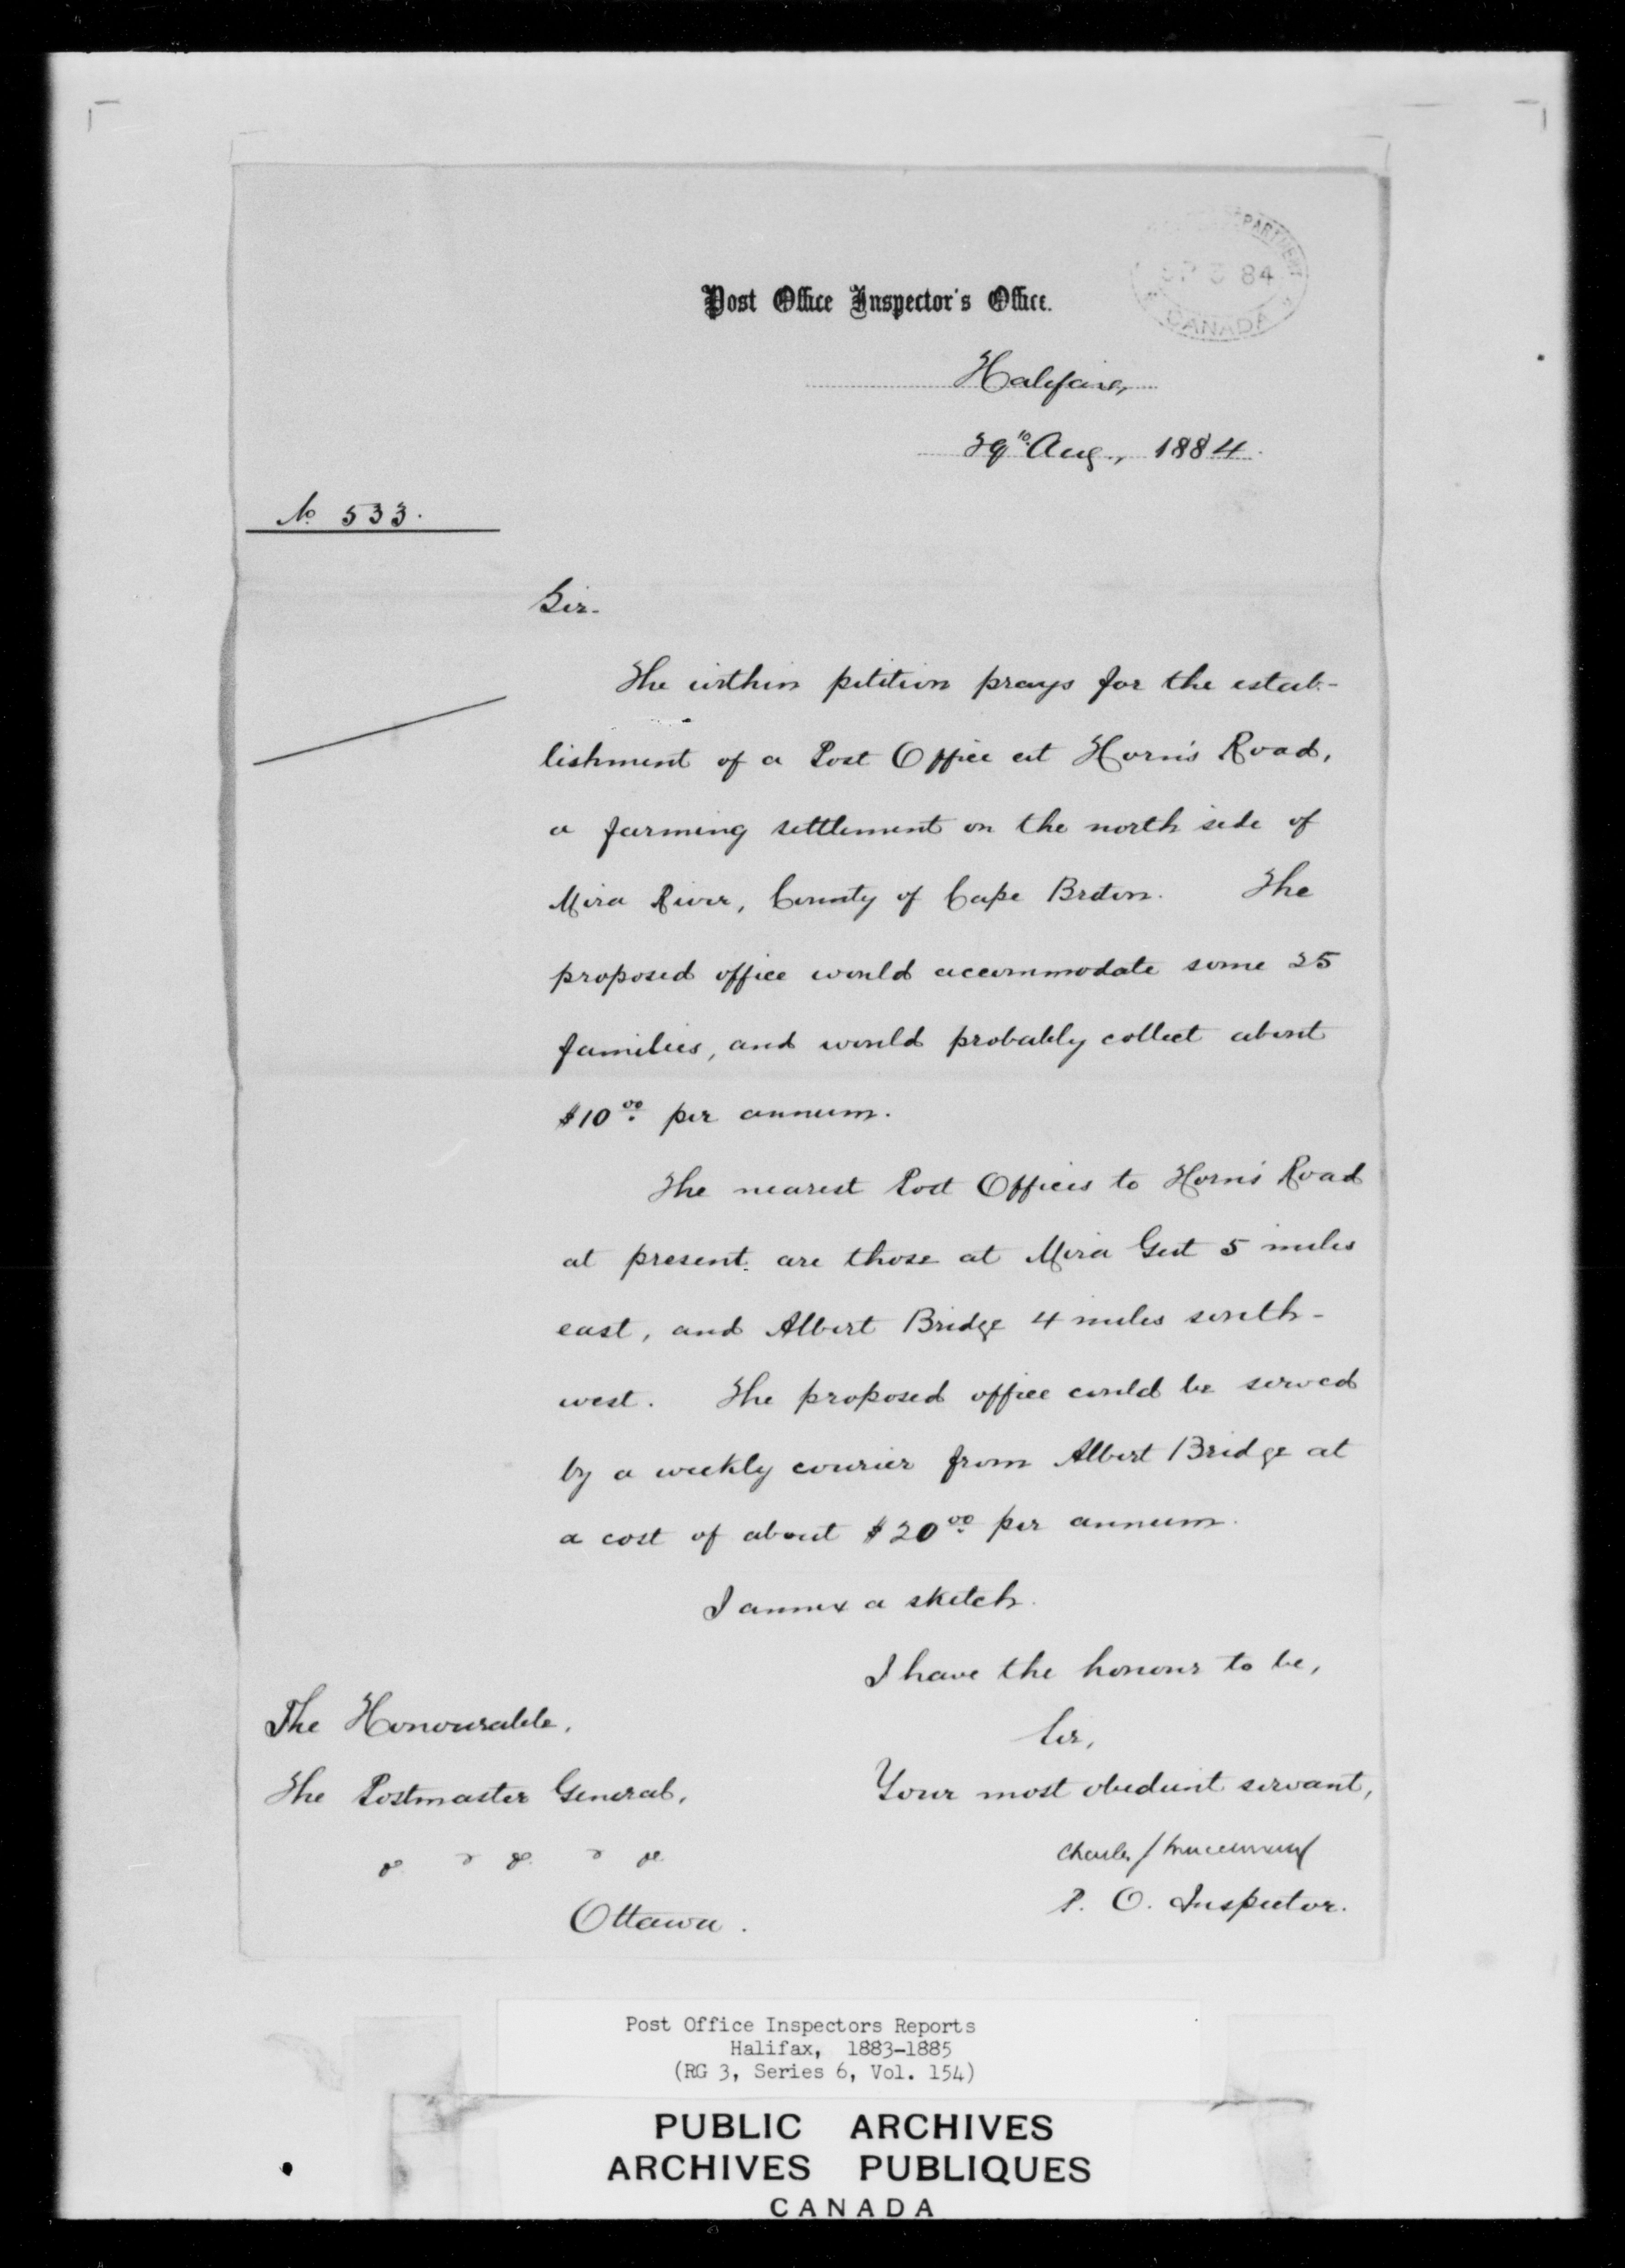 PARTMENT
SP 3 84
CANADA
Post Office Inspector's Office.
Halifax,
29th Aug., 1884.
No 533.
Sir.
The within petition prays for the estab-
lishment of a Post Office at Horn's Road,
a farming settlement on the north side of
Mira River, County of Cape Breton. The
proposed office would accommodate some 25
families, and would probably collect about
$10.00 per annum.
The nearest Post Offices to Horn's Road
at present are those at Mira Gut 5 miles
east, and Albert Bridge 4 miles south-
west. The proposed office could be served
by a weekly courier from Albert Bridge at
a cost of about $20.00 per annum.
I annex a sketch.
I have the honour to be,
Sir,
Your most obedient servant,
Charles J Macdonald
P. O. Inspector.
The Honourable,
The Postmaster General,
Ottawa.
Post Office Inspectors Reports
Halifax, 1883-1885
(RG 3, Series 6, Vol. 154)
PUBLIC ARCHIVES
ARCHIVES PUBLIQUES
CANADA